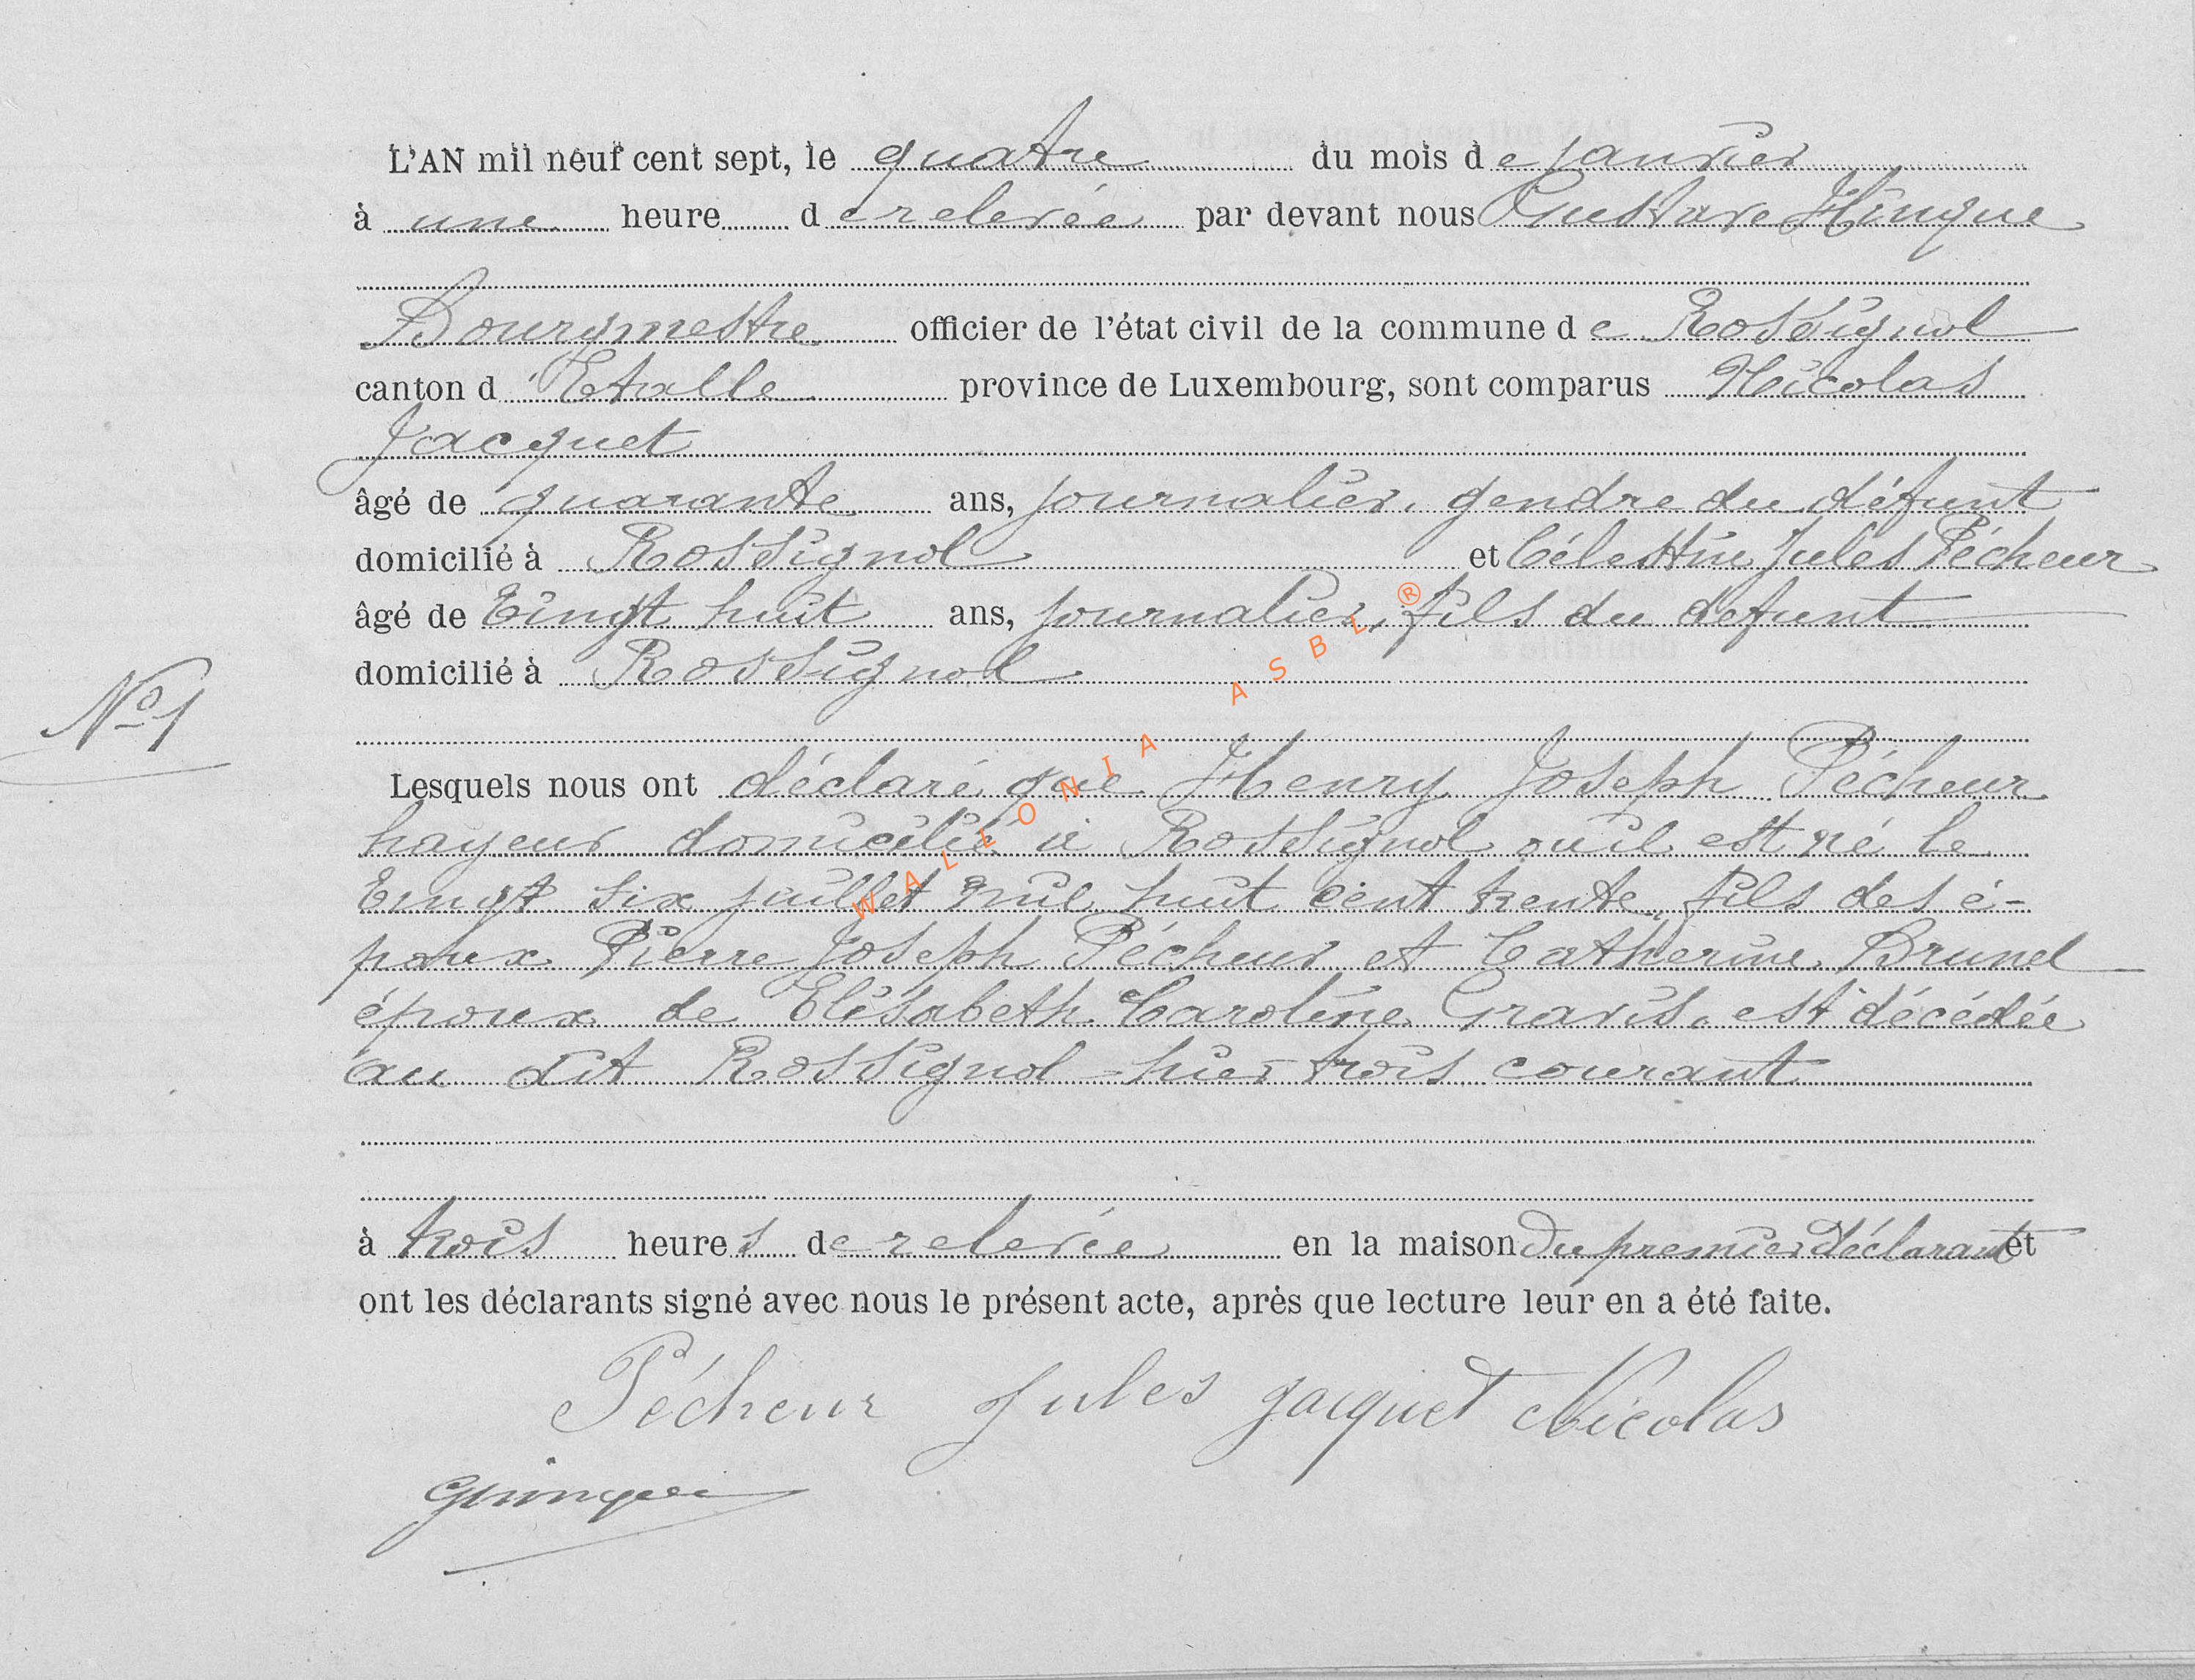 L'AN mil neuf cent sept, le quatre du mois de janvier
à une heure de relevée par devant nous Gustave Hinque
Bourgmestre officier de l'état civil de la commune de Rossignol
canton d'Etalle province de Luxembourg, sont comparus Nicolas
Jacquet
âgé de quarante ans, journalier, gendre du défunt
domicilié à Rossignol et Célestin Jules Pécheur
âgé de Vingt huit ans, journalier, fils du defunt
domicilié à Rossignol
No 1
Lesquels nous ont déclaré que Henry Joseph Pécheur
hayeur domicilié à Rossignol où il est né le
Vingt six juillet mil huit cent trente, fils des é-
poux Pierre Joseph Pécheur et Catherine Brunel
époux de Elisabeth Caroline Gravis, est décédée
au dit Rossignol hier trois courant
à trois heures de relevée en la maison du premier déclarant et
ont les déclarants signé avec nous le présent acte, après que lecture leur en a été faite.
Pécheur Jules Jacquet Nicolas
GHinque
WALLONIA ASBL ®